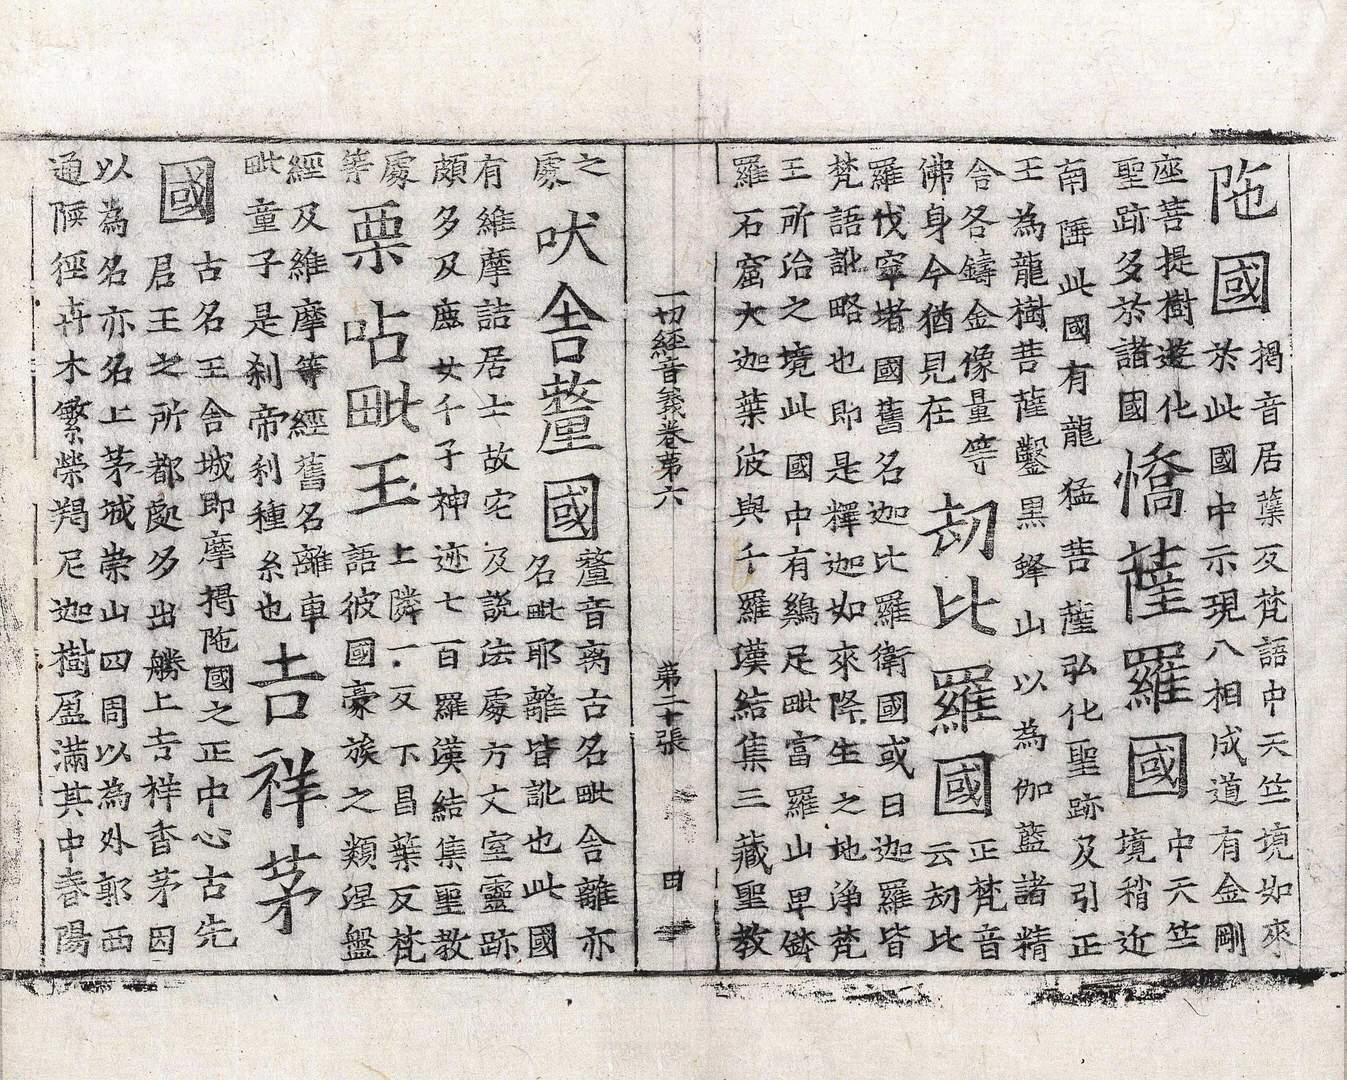 陁國
揭音居蘖反梵語中天竺境如來
於此國中示現八相成道有金剛
座菩提樹遊化
聖跡多於諸國
憍薩羅國
中天竺
境稍近
南陲此國有龍猛菩薩弘化聖跡及引正
王為龍樹菩薩鑿黑蜂山以為伽藍諸精
舍各鑄金像量等
佛身今猶見在
刧比羅國
正梵音
云刧比
羅伐窣堵國舊名迦比羅衛國或曰迦羅皆
梵語訛略也即是釋迦如來降生之地淨梵
王所治之境此國中有鷄足毗富羅山畢鉢
羅石窟大迦葉波與千羅漢結集三藏聖教
一切經音義卷第六 第二十張 田
之
處
吠舍釐國
釐音离古名毗舍離亦
名毗耶離皆訛也此國
有維摩詰居士故宅及說法處方丈室靈跡
頗多及鹿女千子神迹七百羅漢結集聖教
處
等
栗呫毗王
上隣一反下昌葉反梵
語彼國豪族之類涅盤
經及維摩等經舊名離車
毗童子是剎帝利種系也
吉祥茅
國
古名王舍城即摩揭陁國之正中心古先
君王之所都處多出勝上吉祥香茅因
以為名亦名上茅城崇山四周以為外郭西
通陿徑卉木繁榮羯尼迦樹盈滿其中春陽